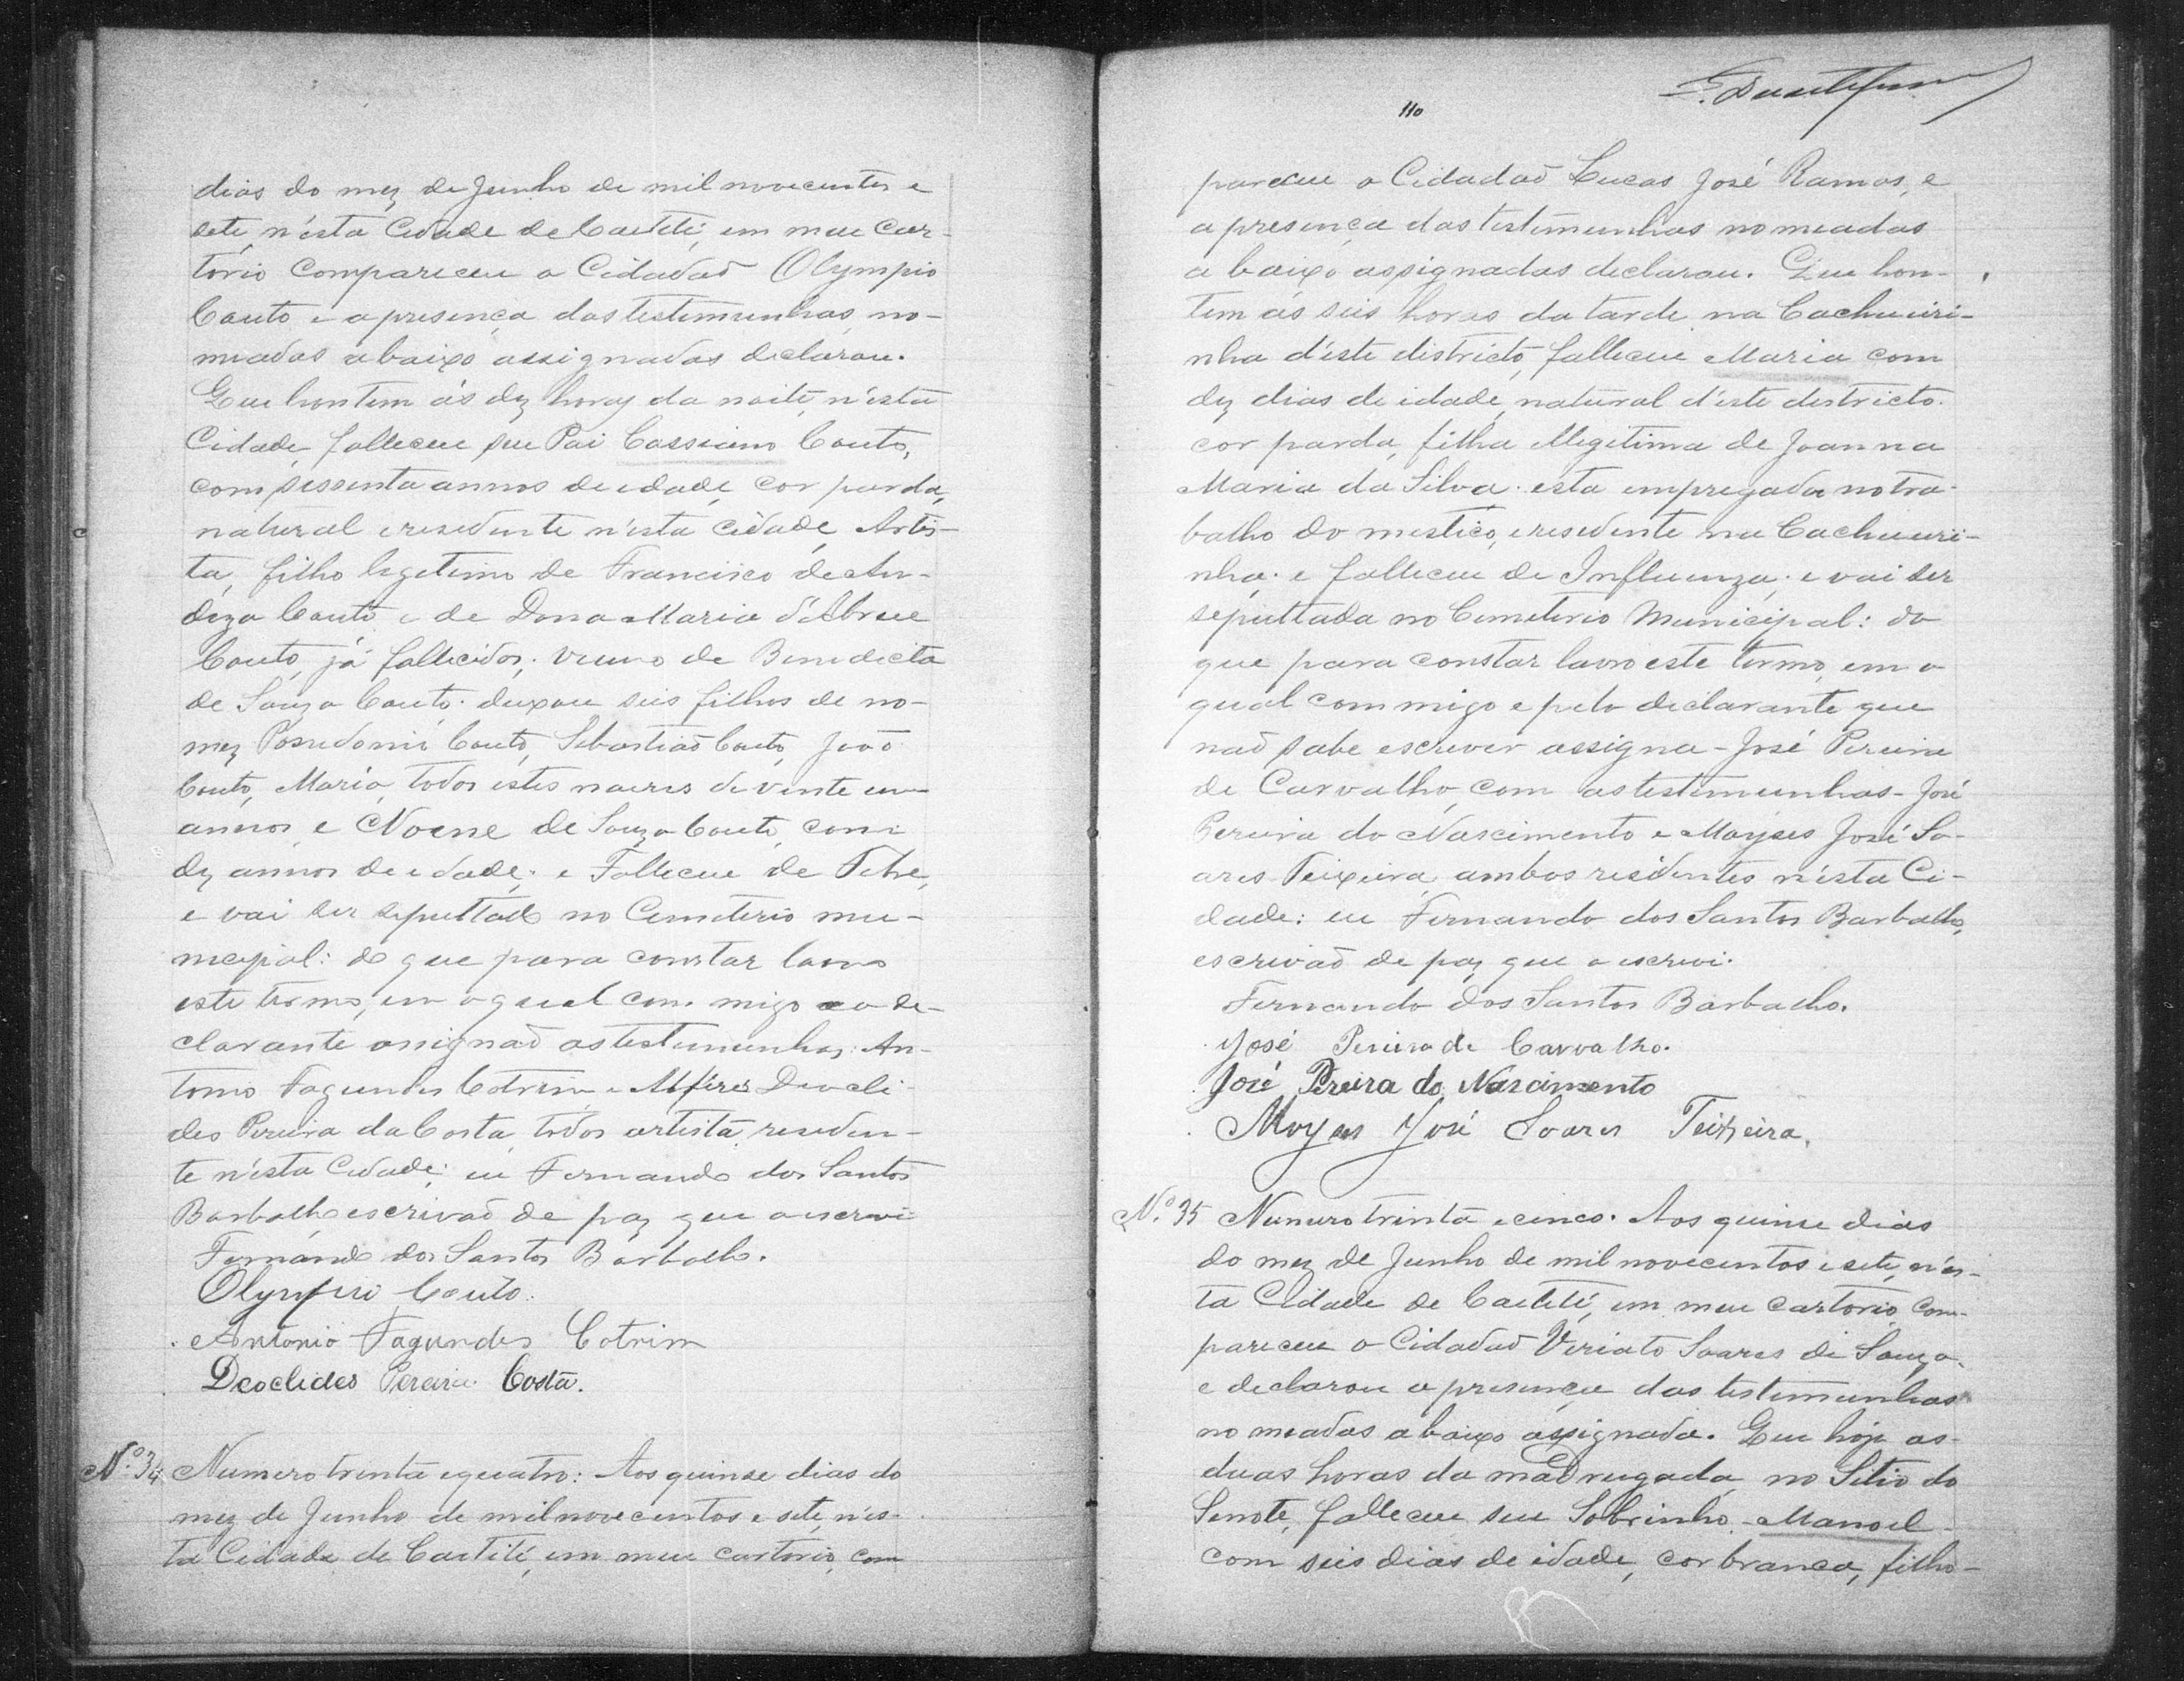 dias do mez de Junho de mil novecentos e
sete, n'esta Cidade de Caeteté, em meu Car-
torio compareceu o Cidadaõ Olympio
Couto e a presença das testemunhas no-
meadas abaixo assignadas declarou.
Que hontem ás dez horas da noite, n'esta
Cidade, falleceu seu Pai Cassiano Couto,
com sessenta annos de idade, cor parda,
natural e residente n'esta cidade, Artis-
ta, filho legitimo de Francisco de
Couto e de Dona Maria d'Abreu
Couto, já fallecidos; viuvo de Benedicta
de Souza Couto; deixou seis filhos de no-
mes Possedonio Couto, Sebastiaõ Couto, Joaõ
Couto, Maria, todos estes maiores de vinte um
annos, e Noeme de Souza Couto, com
dez annos de idade; e Falleceu de Febre,
e vai ser sepultado no Cemiterio mu-
nicipal: do que para constar lavro
este termo, em o qual com migo e o de-
clarante assignaõ as testemunhas: An-
tonio Fagundes Cotrim e Alferes Deocli-
des Pereira da Costa, todos artista, residen-
te n'esta Cidade; eu Fernando dos Santos
Barbalho escrivaõ de paz que o escrevi
Fernando dos Santos Barbalho.
Olympio Couto.
Antonio Fagundes Cotrim
Deoclides Pereira Costa.
Nº 34 Numero trinta e quatro: Aos quinse dias do
mez de Junho de mil novecentos e sete, n'es-
ta Cidade de Caetité, em meu cartorio, com
110
pareceu o Cidadaõ Lucas José Ramos, e
a presença das testemunhas nomeadas
abaixo assignadas declarou. Que hon-
tem ás seis horas da tarde, na Cachueiri-
nha d'este districto, falleceu Maria com
dez dias de idade, natural d'este districto.
cor parda, filha illegitima de Joanna
Maria da Silva. esta empregada no tra-
balho domestico, e residente na Cachueiri-
nha; e falleceu de Influenza; e vai ser
sepultada no Cemiterio Municipal: do
que para constar lavro este termo, em o
qual commigo e pelo declarante que
naõ sabe escrever assigna - José Pereira
de Carvalho, com as testemunhas - José
Pereira do Nascimento e Moyses José So-
ares Teixeira, ambos residentes n'esta Ci-
dade: eu Fernando dos Santos Barbalho,
escrivaõ de paz que o escrevi.
Fernando dos Santos Barbalho.
José Pereira de Carvalho.
José Pereira do Nascimento
Moyses José Soares Teixeira.
Nº 35 Numero trinta e cinco. Aos quinse dias
do mez de Junho de mil novecentos e sete, n'es-
ta Cidade de Caetité, em meu cartorio, com-
pareceu o Cidadaõ Viriato Soares de Souza.
e declarou a presença das testemunhas
nomeadas abaixo assignada. Que hoje as
duas horas da madrugada, no Sitio do
falleceu seu Sobrinho - Manoel -
com seis dias de idade, cor branca, filho-